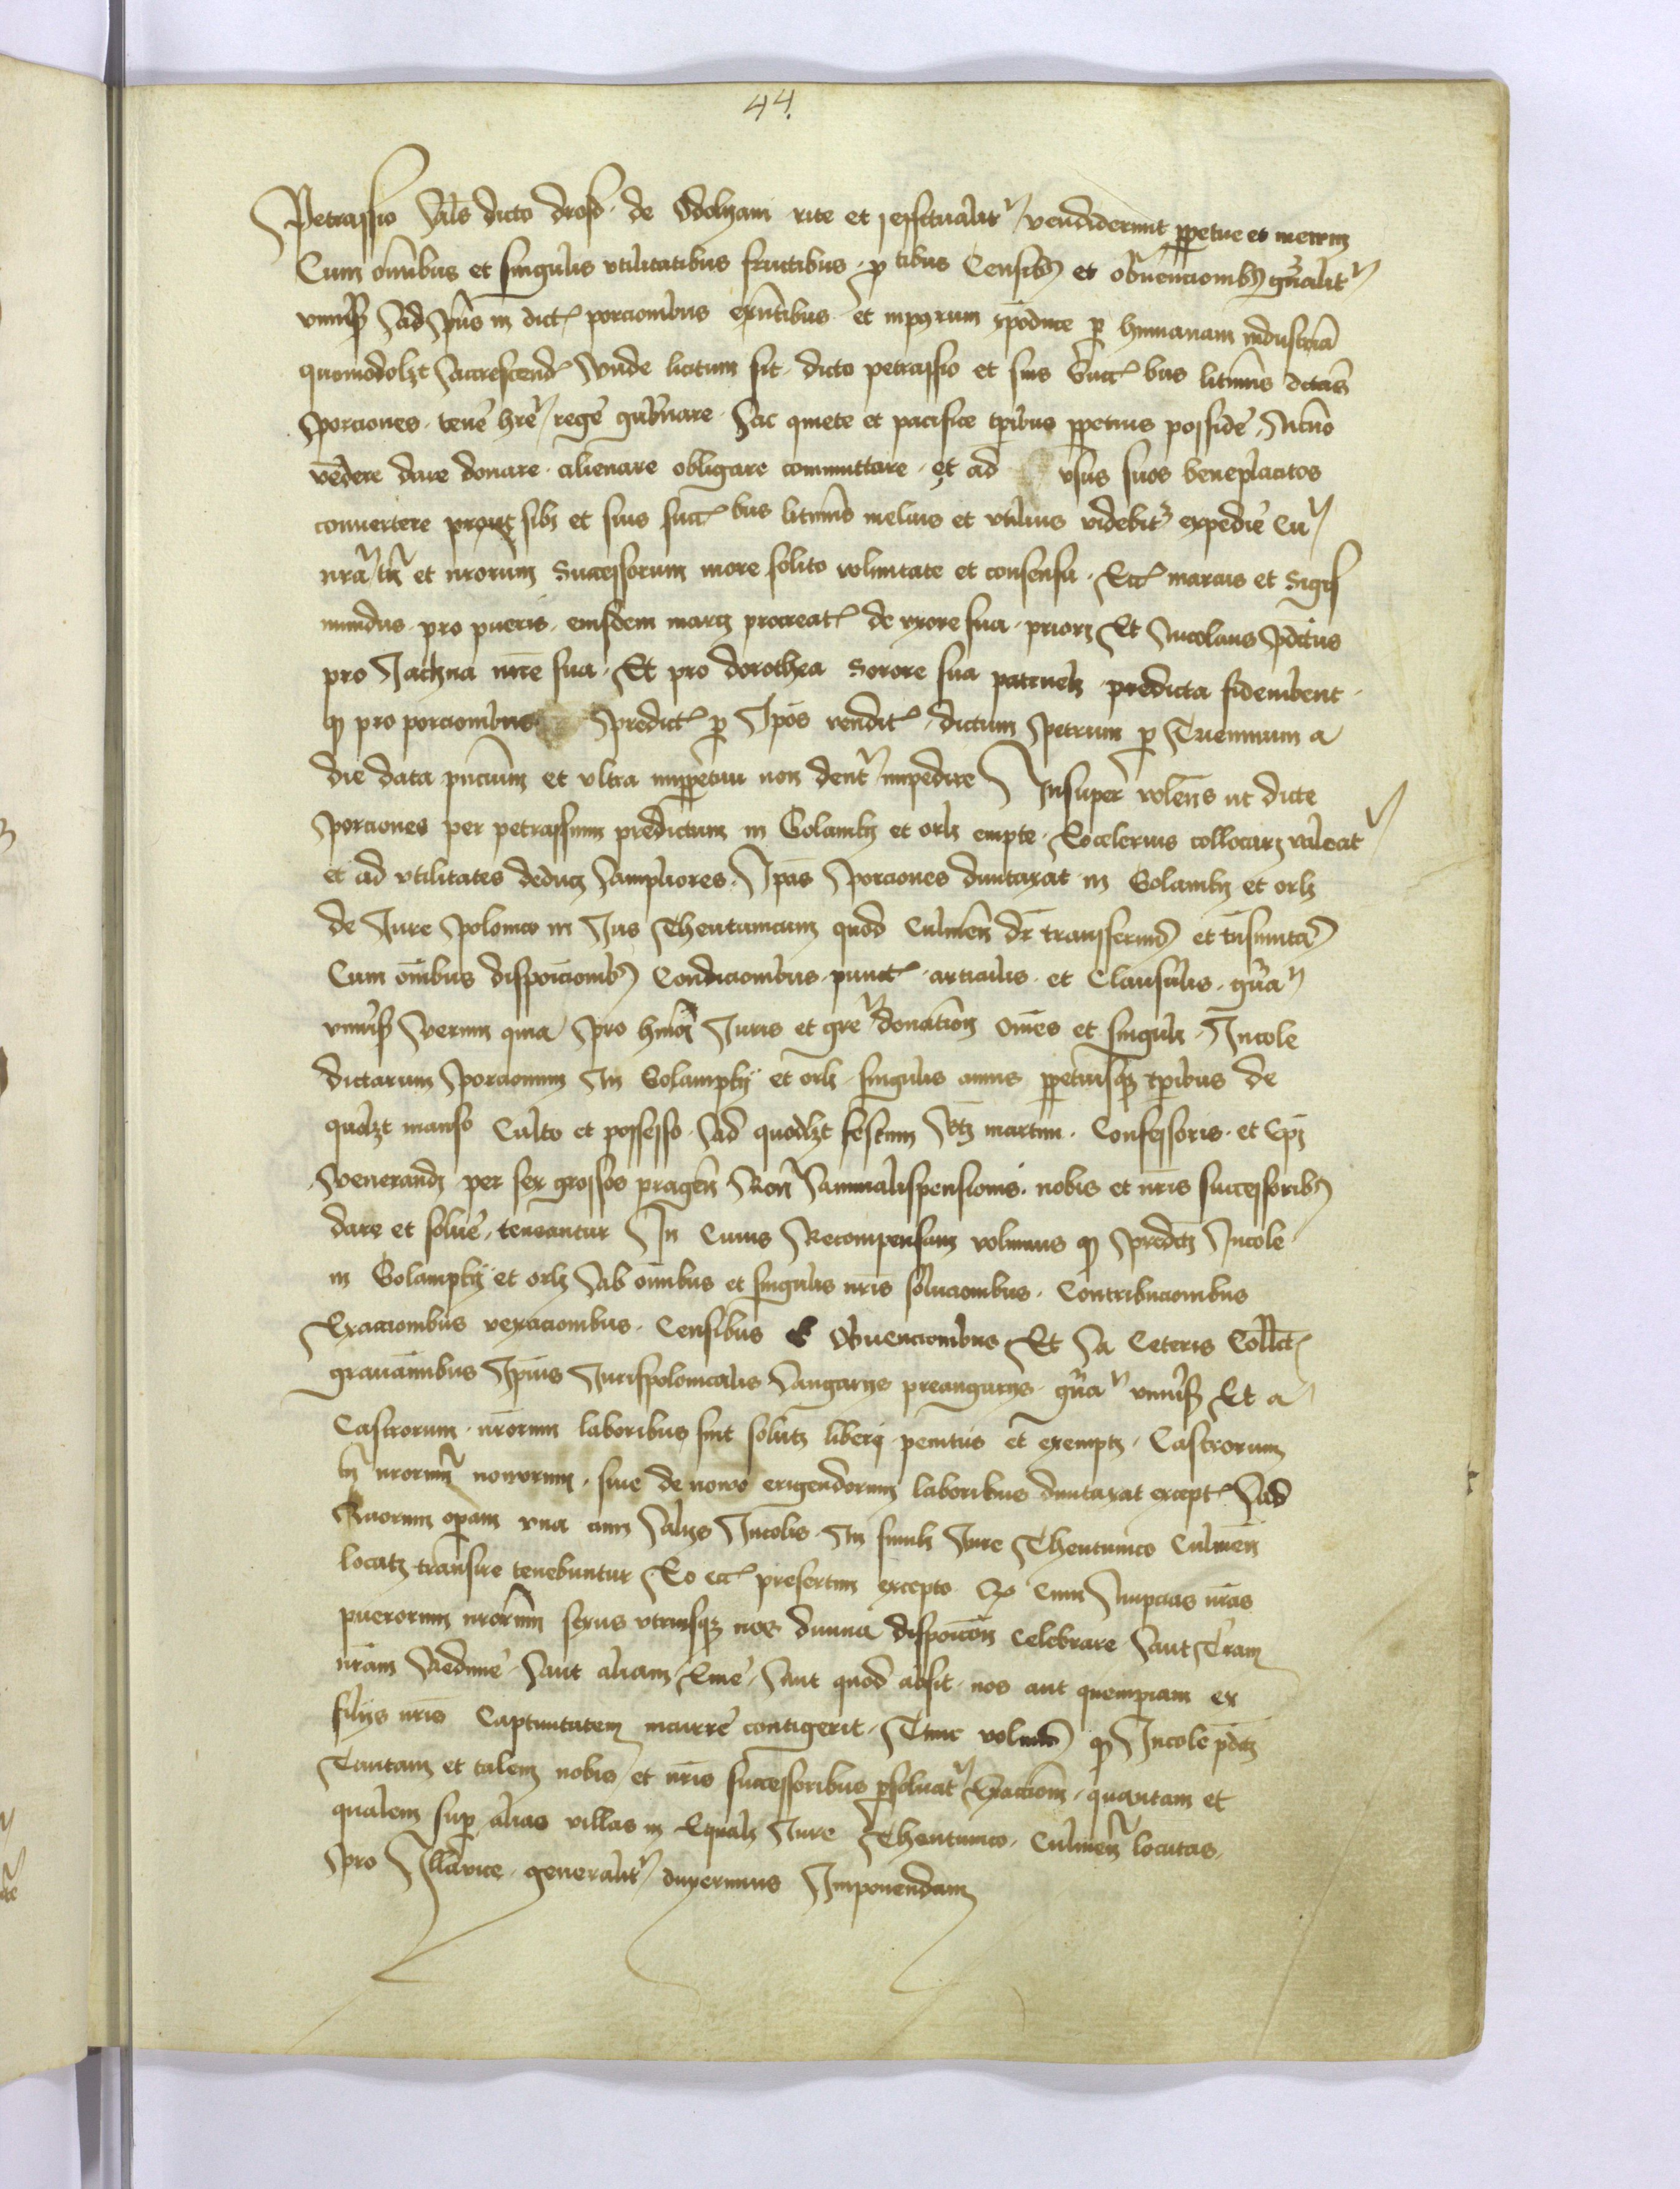 44.
Petrassio als dicto drosd de Odolyani rite et effectualitr vendiderunt ppetue et
Cum omnibus et singulis vtilitatibus fructibus tibus Censibus et obuencionibus gnalitr
vniuersis ad pns in dict porcionibus exntibus et inposterum per humanam industriam
quomodolzt accrescend Vnde licitum sit dicto petrassio et suis succ bus litimis dictas
porciones tene hre rege gubnare ac quiete et pacifice tpibus ppetuis posside
vendere dare donare alienare obligare commuttare et ad vsus suos beneplacitos
conuertere prout sibi et suis succ bus litimis melius et vtilius videbitr expedire Cu
nra tn et nrorum Successorum more solito voluntate et consensu Ecc marcus et Sigis
mundus pro pueris eiusdem marci procreat de vxore sua priori Et Nicolaus pdictus
pro Jachna mre sua Et pro dorothea Sorore sua patrueli predicta fideiubent
q pro porcionibus predict p Ipos vendit dictum petrum p Triennium a
die data pncium et vltra imppetuu non dent impedire Insuper volens ut dicte
porciones per petrassium predictum in Golamky et orly empte eocelerius collocari valeat
et ad vtilitates deduci ampliores Ipas porciones duntaxat in Golamky et orly
de Iure polonico in Ius Theutunicum quod Culmen dr transferimus et tnsmutamus
Cum omibus disposicionibus Condicionibus punct articulis et Clausulis gna
vniuersis Verum quia pro hmoi Iuris et gre donacionem omes et singuli Incole
dictarum porcionum In Golampky et orly singulis annis ppetuisque tpibus de
quolzt manso Culto et possesso ad quodlzt festum sti martini Confessoris et Epi
Venerandi per sex grossos pragen Ron annualispensionis nobis et nris successoribus
dare et solue teneantur In Cuius Recompensam volumus q predicti Incole
in Golampky et orly ab omibus et singulis nris solucionibus Contribucionibus
Exaccionibus vexacionibus Censibus Obuencionibus Et a Ceteris Collct
grauaminibus Ipius Iurispolonicalis angarys preangarys gna vniuersis Et a
Castrorum nrorum laboribus sint soluti liberi penitus et exempti Castrorum
tn nrorum nouorum siue de nouo erigendorum laboribus duntaxat except ad
Quorum opam vna cum alys Incolis In simili Iure Theutunico Culmen
locati transire tenebuntur Eo ecc presertim excepto Qo Cum Nupcias nras
puerorum nrorum sexus vtriusque nos diuina disposicione Celebrare aut Tram
nram redime aut aliam Eme aut quod absit nos aut quempiam ex
filys nris Captiuitatem incurre contigerit Tunc volumus q Incole pdci
Tantam et talem nobis et nris successoribus psoluat Exaccionem quantam et
qualem sup alias villas in Equali Iure Theutunico Culmen locatas
pro Illa vice generalitr duxerimus Imponendam